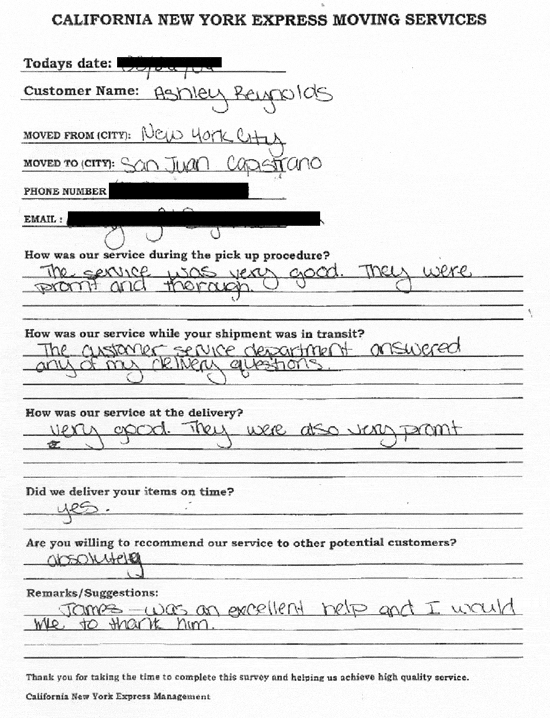 CALIFORNIA NEW YORK EXPRESS MOVING SERVICES
Todays date:
Customer Name: Ashley Reynolds
MOVED FROM (CITY): New York City
MOVED TO (CITY): San Juan Capistrano
PHONE NUMBER
EMAIL :
How was our service during the pick up procedure?
The service was very good. They were
promt and thorough.
How was our service while your shipment was in transit?
The customer service department answered
any of my delivery questions.
How was our service at the delivery?
very good. They were also very promt
Did we deliver your items on time?
yes.
Are you willing to recommend our service to other potential customers?
absolutely
Remarks/Suggestions:
James - was an excellent help and I would
like to thank him.
Thank you for taking the time to complete this survey and helping us achieve high quality service.
California New York Express Management